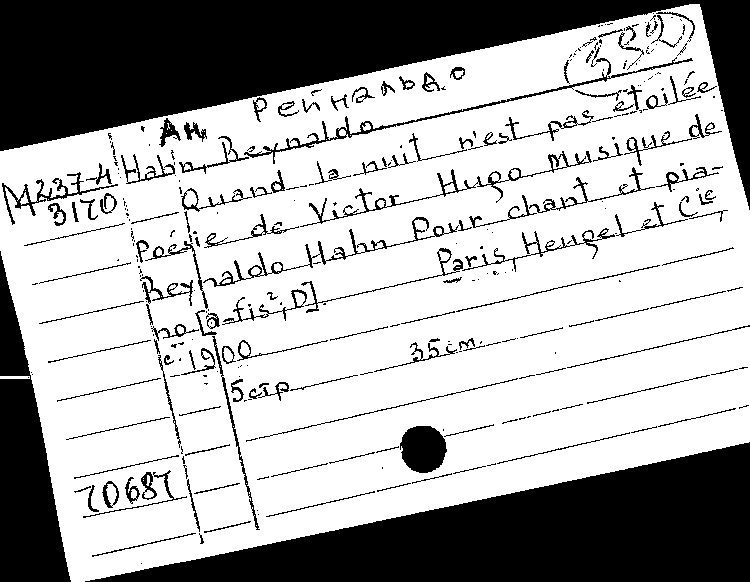 Ан. Рейнальдо 332
М237-Н Hahn, Reynaldo
3170 Quand la nuit n'est pas étoilée
Poésie de Victor Hugo Musique de
Reynaldo Hahn Pour chant et pia-
no [a-fis²; D]. Paris, Heugel et Cie,
c. 1900.
5 стр. 35 cm.
70687